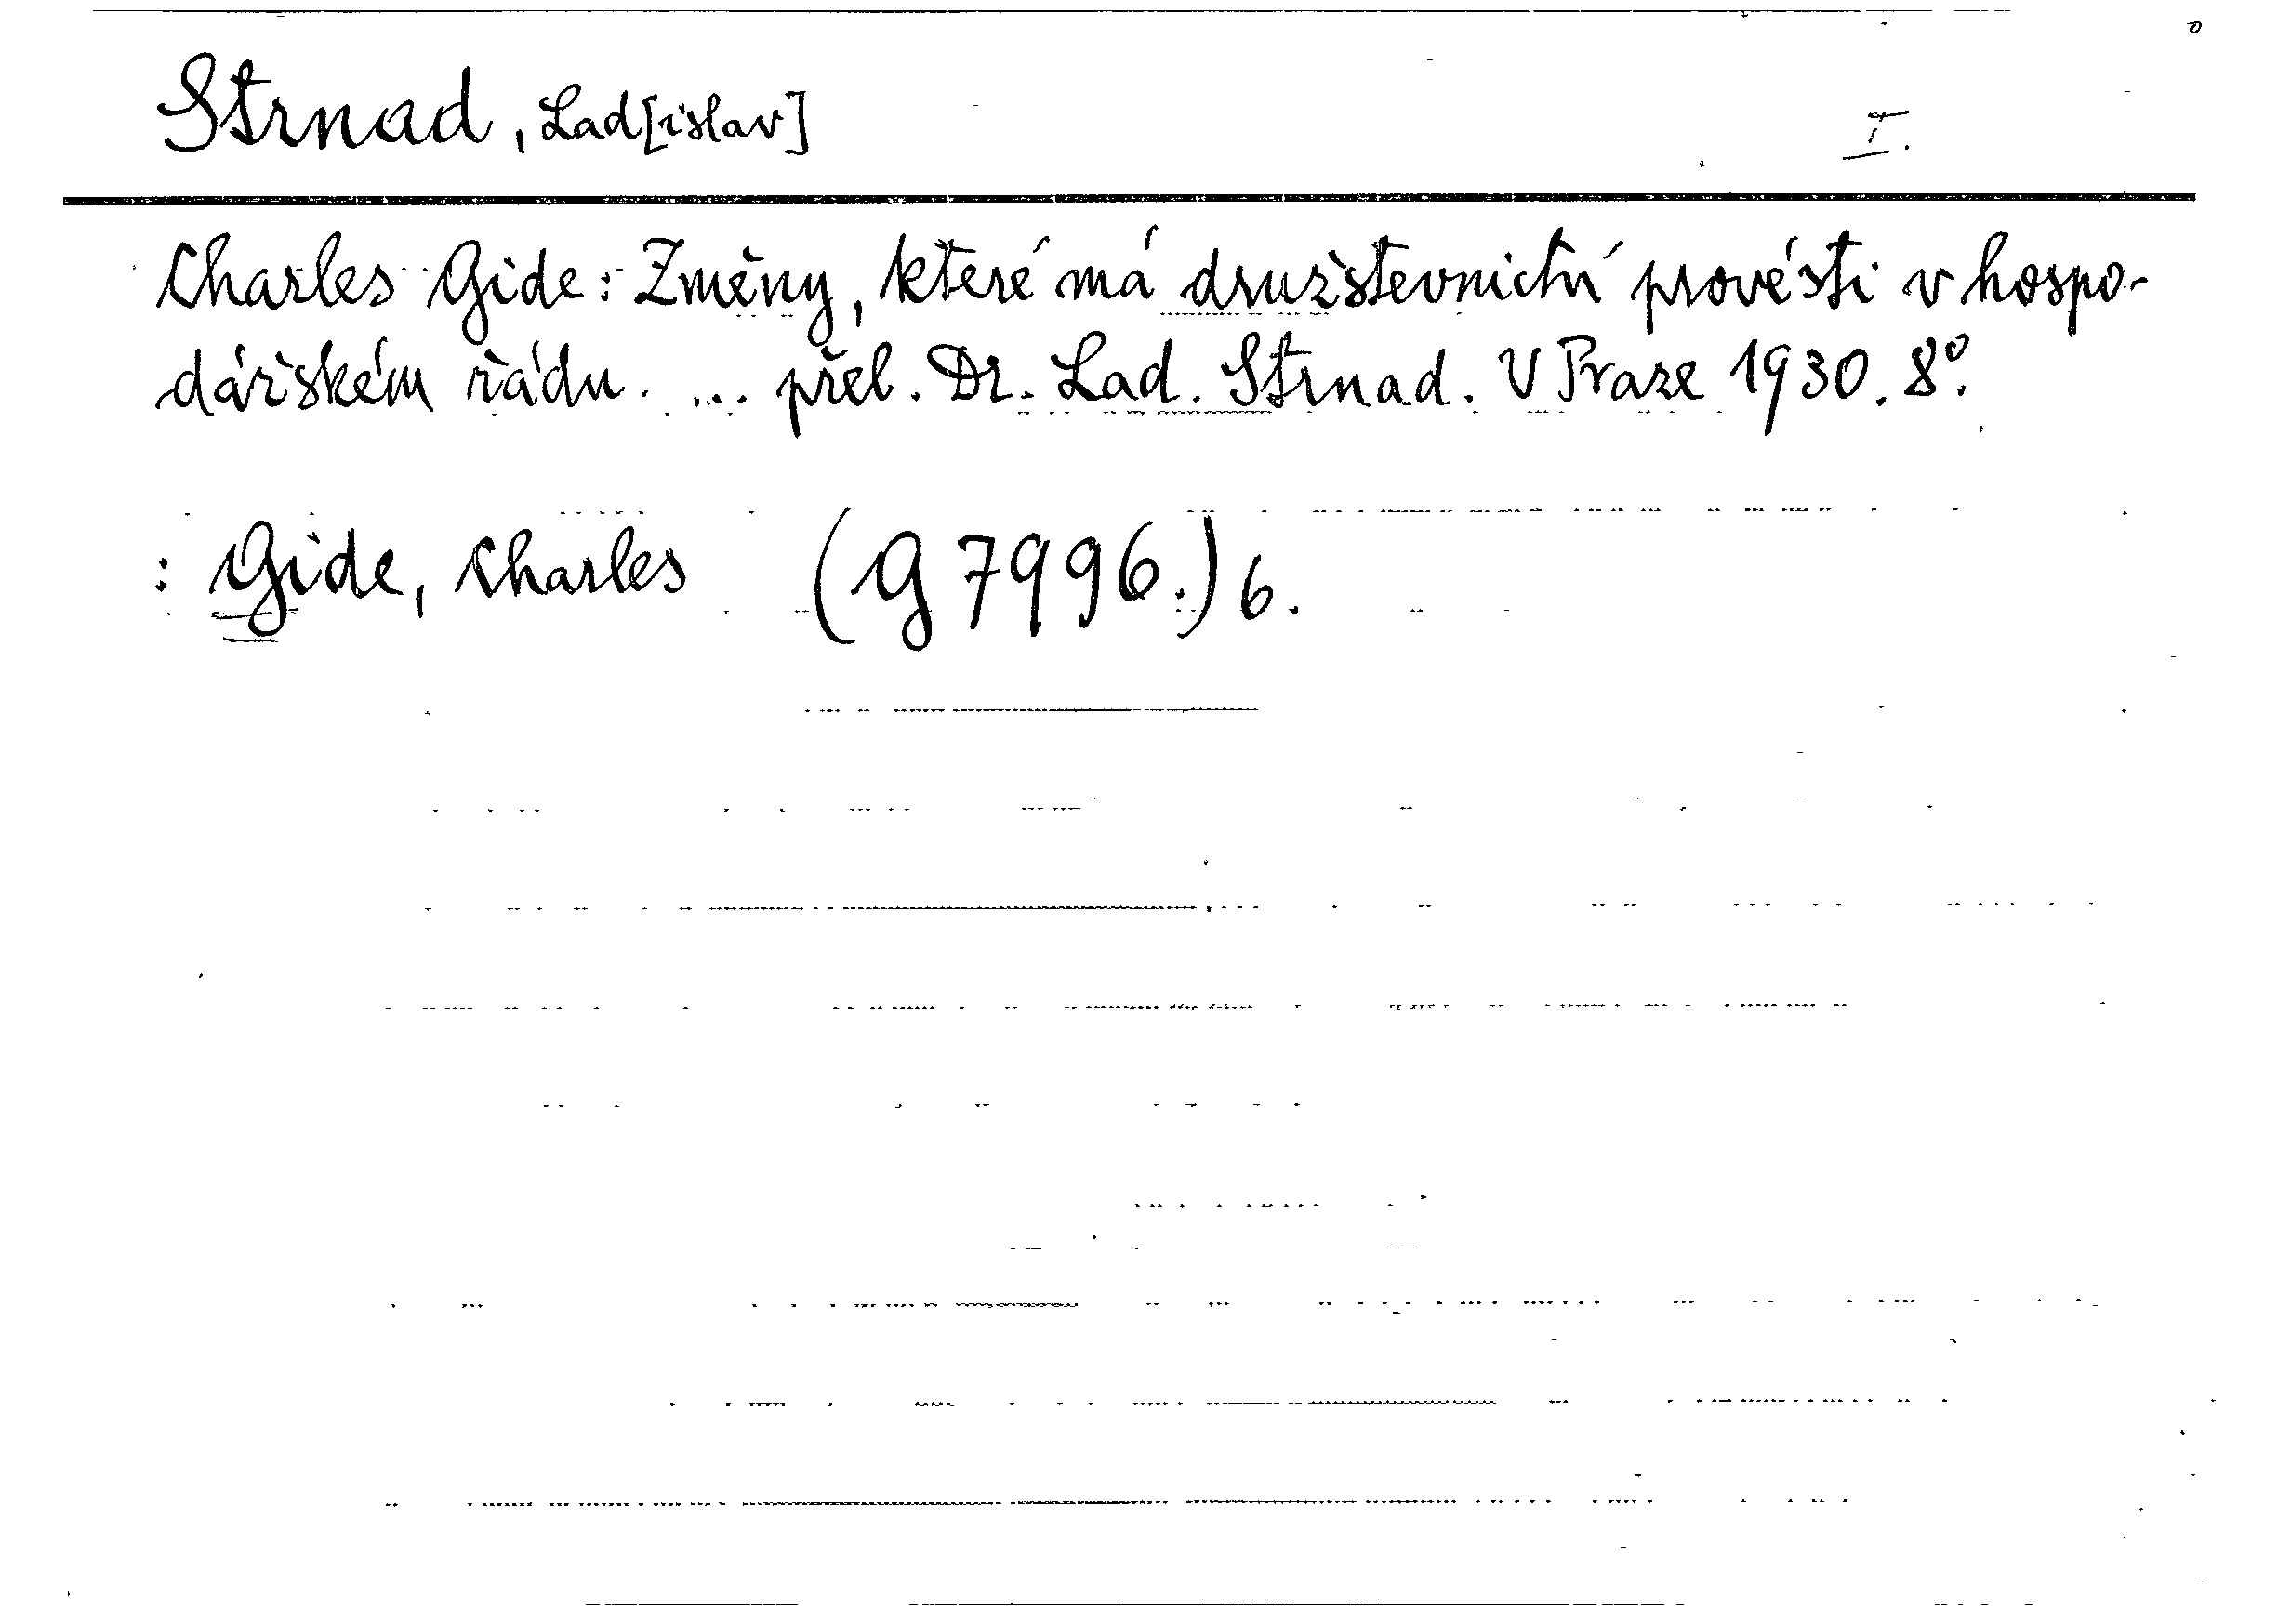 Strnad, Lad[islav] I.
Charles Gide: Změny, které má družstevnictví provésti v hospo-
dářském řádu. ... přel. Dr. Lad. Strnad. V Praze 1930. 8°.
: Gide, Charles (G 7996.) 6.